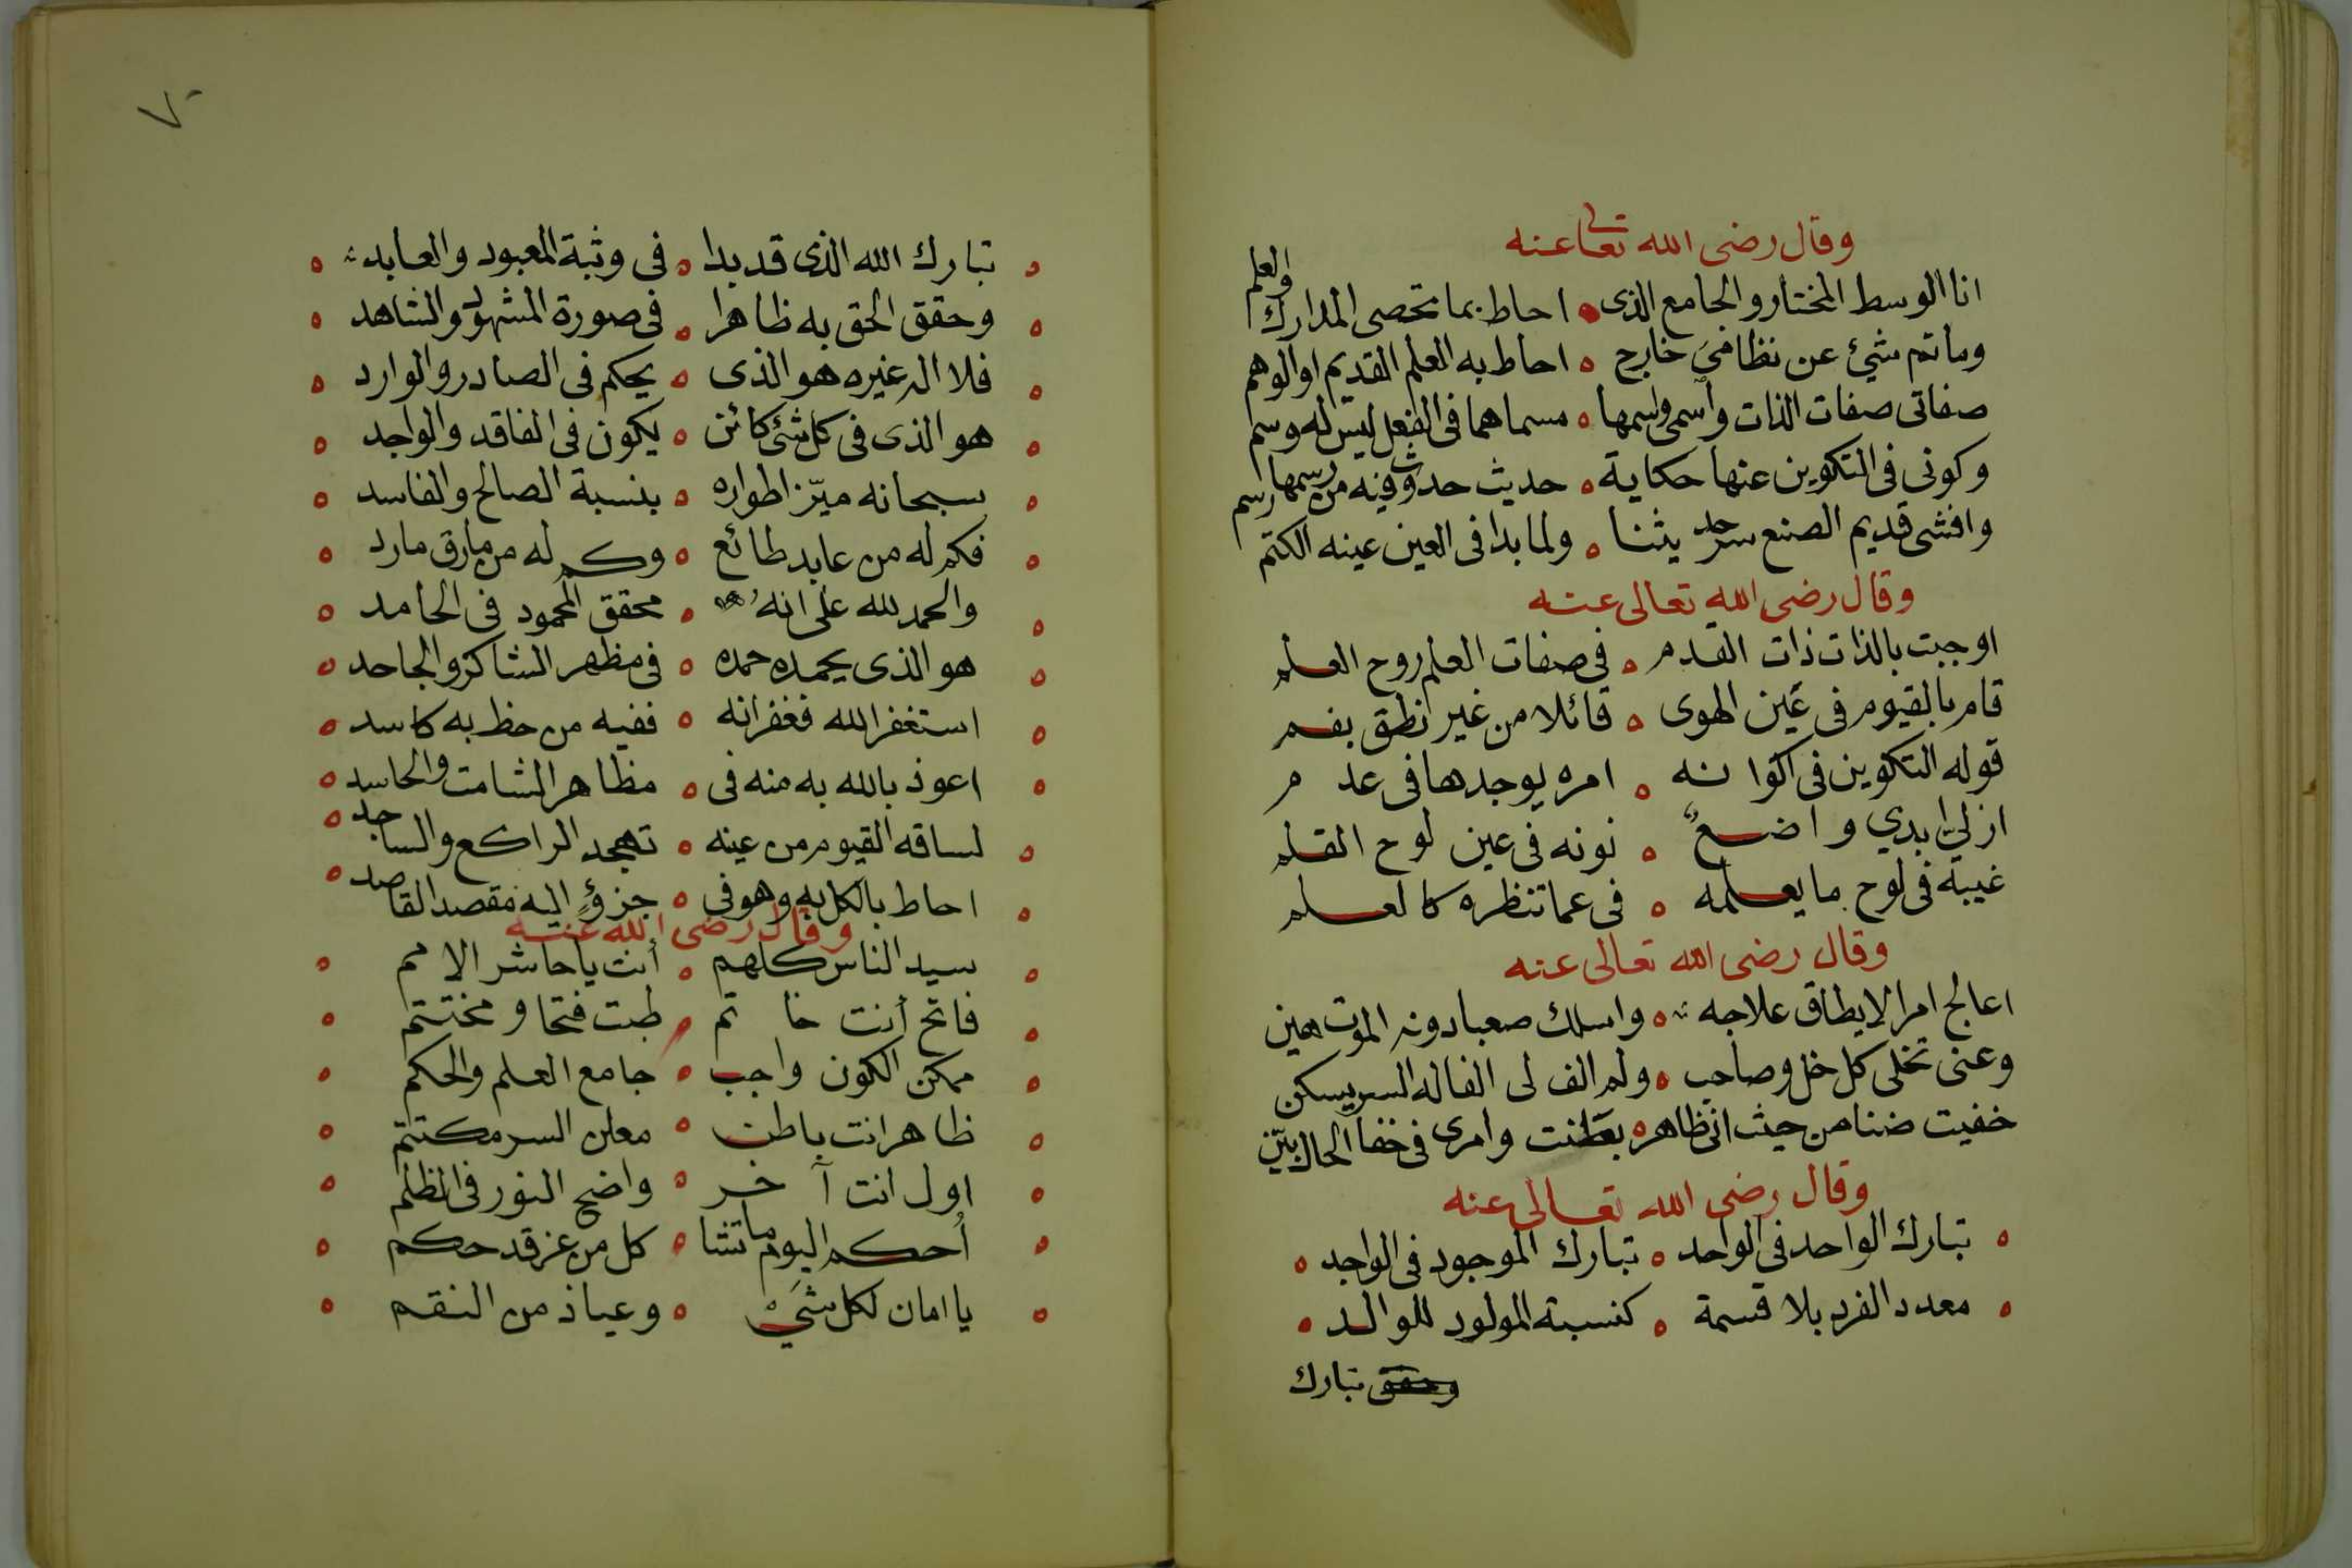 وقال رضى الله تعالى عنه
انا الوسط المختار والجامع الذى ه احاط بما تحصى المدارك والعلم
وما تم شيئ عن نظامى خارج ه احاط به العلم القديم او الوهم
صفاتى صفات الذات واسمى واسمها ه مسماهما فى الفعل ليس له وسم
وكونى فى التكوين عنها حكاية ه حديث حدوث فيه من رسمها رسم
وافشى قديم الصنع سر حديثنا ه ولما بدا فى العين عينه الكتم
وقال رضى الله تعالى عنه
اوجبت بالذات ذات القدم ه فى صفات العلم روح العلم
قام بالقيوم فى عين الهوى ه قائلا من غير نطق بفم
قوله التكوين فى اكوانه ه امره يوجدها فى عدم
ازليّ ابدي واضعٌ ه نونه فى عين لوح القلم
غيبة فى لوح ما يعلمه ه فى عما تنظره كالعلم
وقال رضى الله تعالى عنه
اعالج امرا لا يطاق علاجه ه واسلك صعبا دونه الموت هين
وعنى تخلى كل خل وصاحب ه ولم الف لى الفا له السر يسكن
خفيت ضنا من حيث انى ظاهر ه بطنت وامرى فى خفا الحال بيّن
وقال رضى الله تعالى عنه
ه تبارك الواحد فى الواحد ه تبارك الموجود فى الواجد ه
ه معدد الفرد بلا قسمة ه كنسبة المولود للوالد ه
وحقق تبارك
٧٠
ه تبارك الله الذى قد بدا ه فى وثبة المعبود والعابد ه
ه وحقق الحق به ظاهرا ه فى صورة المشهود والشاهد ه
ه فلا اله غيره هو الذى ه يحكم فى الصادر والوارد ه
ه هو الذى فى كل شئ كائن ه يكون فى الفاقد والواجد ه
ه سبحانه ميّز اطواره ه بنسبة الصالح والفاسد ه
ه فكم له من عابد طائع ه وكم له من مارق مارد ه
ه والحمد لله على انه ه محقق المحمود فى الحامد ه
ه هو الذى يحمده حمده ه فى مظهر الشاكر والجاحد ه
ه استغفر الله فغفرانه ه ففيه من حظ به كاسد ه
ه اعوذ بالله به منه فى ه مظاهر الشامت والحاسد ه
ه لساقه القيوم من عينه ه تهجد الراكع والساجد ه
ه احاط بالكل به وهو فى ه جزؤٍ اليه مقصد القاصد ه
وقال رضى الله عنه
ه سيد الناس كلهم ه أنت يا حاشر الامم ه
ه فاتح أنت خاتم ه طبت فتحا ومختتم ه
ه ممكن الكون واجب ه جامع العلم والحكم ه
ه ظاهر انت باطن ه معلن السر مكتتم ه
ه اول انت آخر ه واضح النور فى الظلم ه
ه أُحكم اليوم ما تشا ه كل من عز قد حكم ه
ه يا امان لكل شيَ ه وعياذ من النقم ه